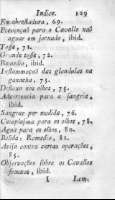 Indice. 129
Encabestadura, 69.
Provençal para o Cavallo nad
aguar em jornada, ibid.
Tosse, 72.
Grande tosse, 72.
Baunilo, ibid.
Inflammaçaõ das glandulas na
garganta, 75.
Defluxo nos olhos, 75.
Advertencia para a sangria,
ibid.
Sangrar por medida, 76.
Cataplasma para os olhos, 78.
Agua para os olhos, 80.
Belida: Remedio, 82.
Aviso contra certas operações,
85.
Observações sobre os Cavallos
ibid.
I Lam.